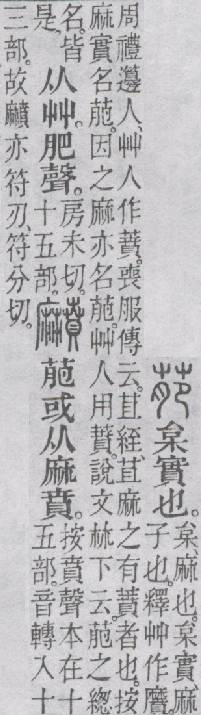 萉 枲實也。
枲、麻也。枲實、麻
子也。釋艸作黂。
周禮籩人、艸人作蕡。喪服傳云。苴絰、苴麻之有蕡者也。按
麻實名萉。因之麻亦名萉。艸人用蕡。說文𣏟下云。萉之緫
名。皆
是。
从艸。肥聲。
房未切。
十五部。
𪎰 萉或从麻賁。
按賁聲本在十
五部。音轉入十
三部。故𪎰亦符刃、符分切。